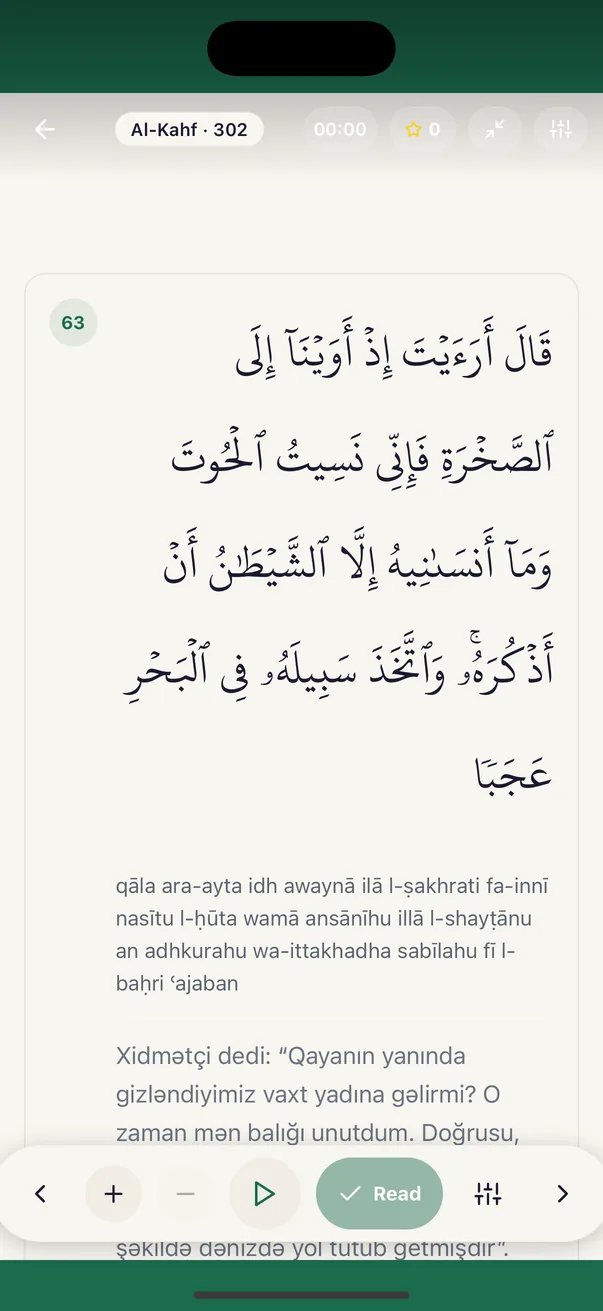 Al-Kahf · 302
00:00
0
63
قَالَ أَرَءَيۡتَ إِذۡ أَوَيۡنَآ إِلَى
ٱلصَّخۡرَةِ فَإِنِّي نَسِيتُ ٱلۡحُوتَ
وَمَآ أَنسَىٰنِيهُ إِلَّا ٱلشَّيۡطَٰنُ أَنۡ
أَذۡكُرَهُۥۚ وَٱتَّخَذَ سَبِيلَهُۥ فِي ٱلۡبَحۡرِ
عَجَبٗا
qāla ara-ayta idh awaynā ilā l-ṣakhrati fa-innī
nasītu l-ḥūta wamā ansānīhu illā l-shayṭānu
an adhkurahu wa-ittakhadha sabīlahu fī l-
baḥri ʿajaban
Xidmətçi dedi: “Qayanın yanında
gizləndiyimiz vaxt yadına gəlirmi? O
zaman mən balığı unutdum. Doğrusu,
Read
şəkildə dənizdə yol tutub getmişdir”.